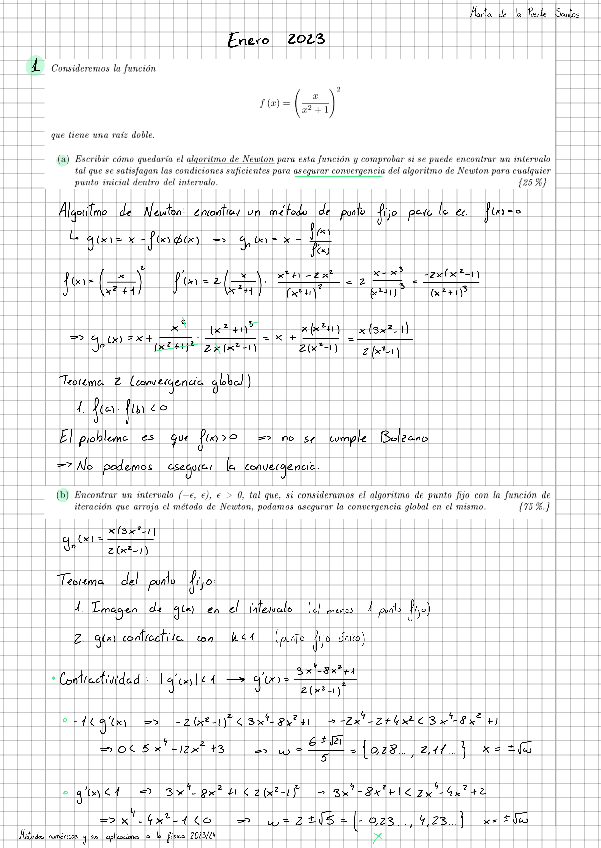 Marta de la Puente Santos
Enero 2023
1 Consideremos la función
f (x) = (x / (x² + 1))²
que tiene una raíz doble.
(a) Escribir cómo quedaría el algoritmo de Newton para esta función y comprobar si se puede encontrar un intervalo
tal que se satisfagan las condiciones suficientes para asegurar convergencia del algoritmo de Newton para cualquier
punto inicial dentro del intervalo. [25 %]
Algoritmo de Newton encontrar un método de punto fijo para la ec. f(x)=0
↳ g(x) = x - f(x)ϕ(x) ⇒ gₙ(x) = x - f(x)/f'(x)
f(x) = (x/(x²+1))² f'(x) = 2(x/(x²+1)) · (x²+1-2x²)/(x²+1)² = 2 (x-x³)/(x²+1)³ = -2x(x²-1)/(x²+1)³
⇒ gₙ(x) = x + x²/(x²+1)² · (x²+1)³/(2x(x²-1)) = x + x(x²+1)/(2(x²-1)) = x(3x²-1)/(2(x²-1))
Teorema 2 (convergencia global)
1. f(a) · f(b) < 0
El problema es que f(x)>0 ⇒ no se cumple Bolzano
⇒ No podemos asegurar la convergencia.
(b) Encontrar un intervalo (−ϵ, ϵ), ϵ > 0, tal que, si consideramos el algoritmo de punto fijo con la función de
iteración que arroja el método de Newton, podamos asegurar la convergencia global en el mismo. [75 %]
gₙ(x) = x(3x²-1)/(2(x²-1))
Teorema del punto fijo:
1 Imagen de g(x) en el intervalo (al menos 1 punto fijo)
2 g(x) contractiva con k<1 (punto fijo único)
• Contractividad: |g'(x)|<1 → g'(x) = (3x⁴-8x²+1)/(2(x²-1)²)
∘ -1<g'(x) ⇒ -2(x²-1)² < 3x⁴-8x²+1 → -2x⁴-2+4x² < 3x⁴-8x²+1
⇒ 0 < 5x⁴-12x²+3 ⇒ w = (6±√21)/5 = {0,28..., 2,11...} x = ±√w
∘ g'(x)<1 ⇒ 3x⁴-8x²+1 < 2(x²-1)² → 3x⁴-8x²+1 < 2x⁴-4x²+2
⇒ x⁴-4x²-1<0 ⇒ w = 2±√5 = {-0,23..., 4,23...} x = ±√w
Métodos numéricos y sus aplicaciones a la física 2023/24